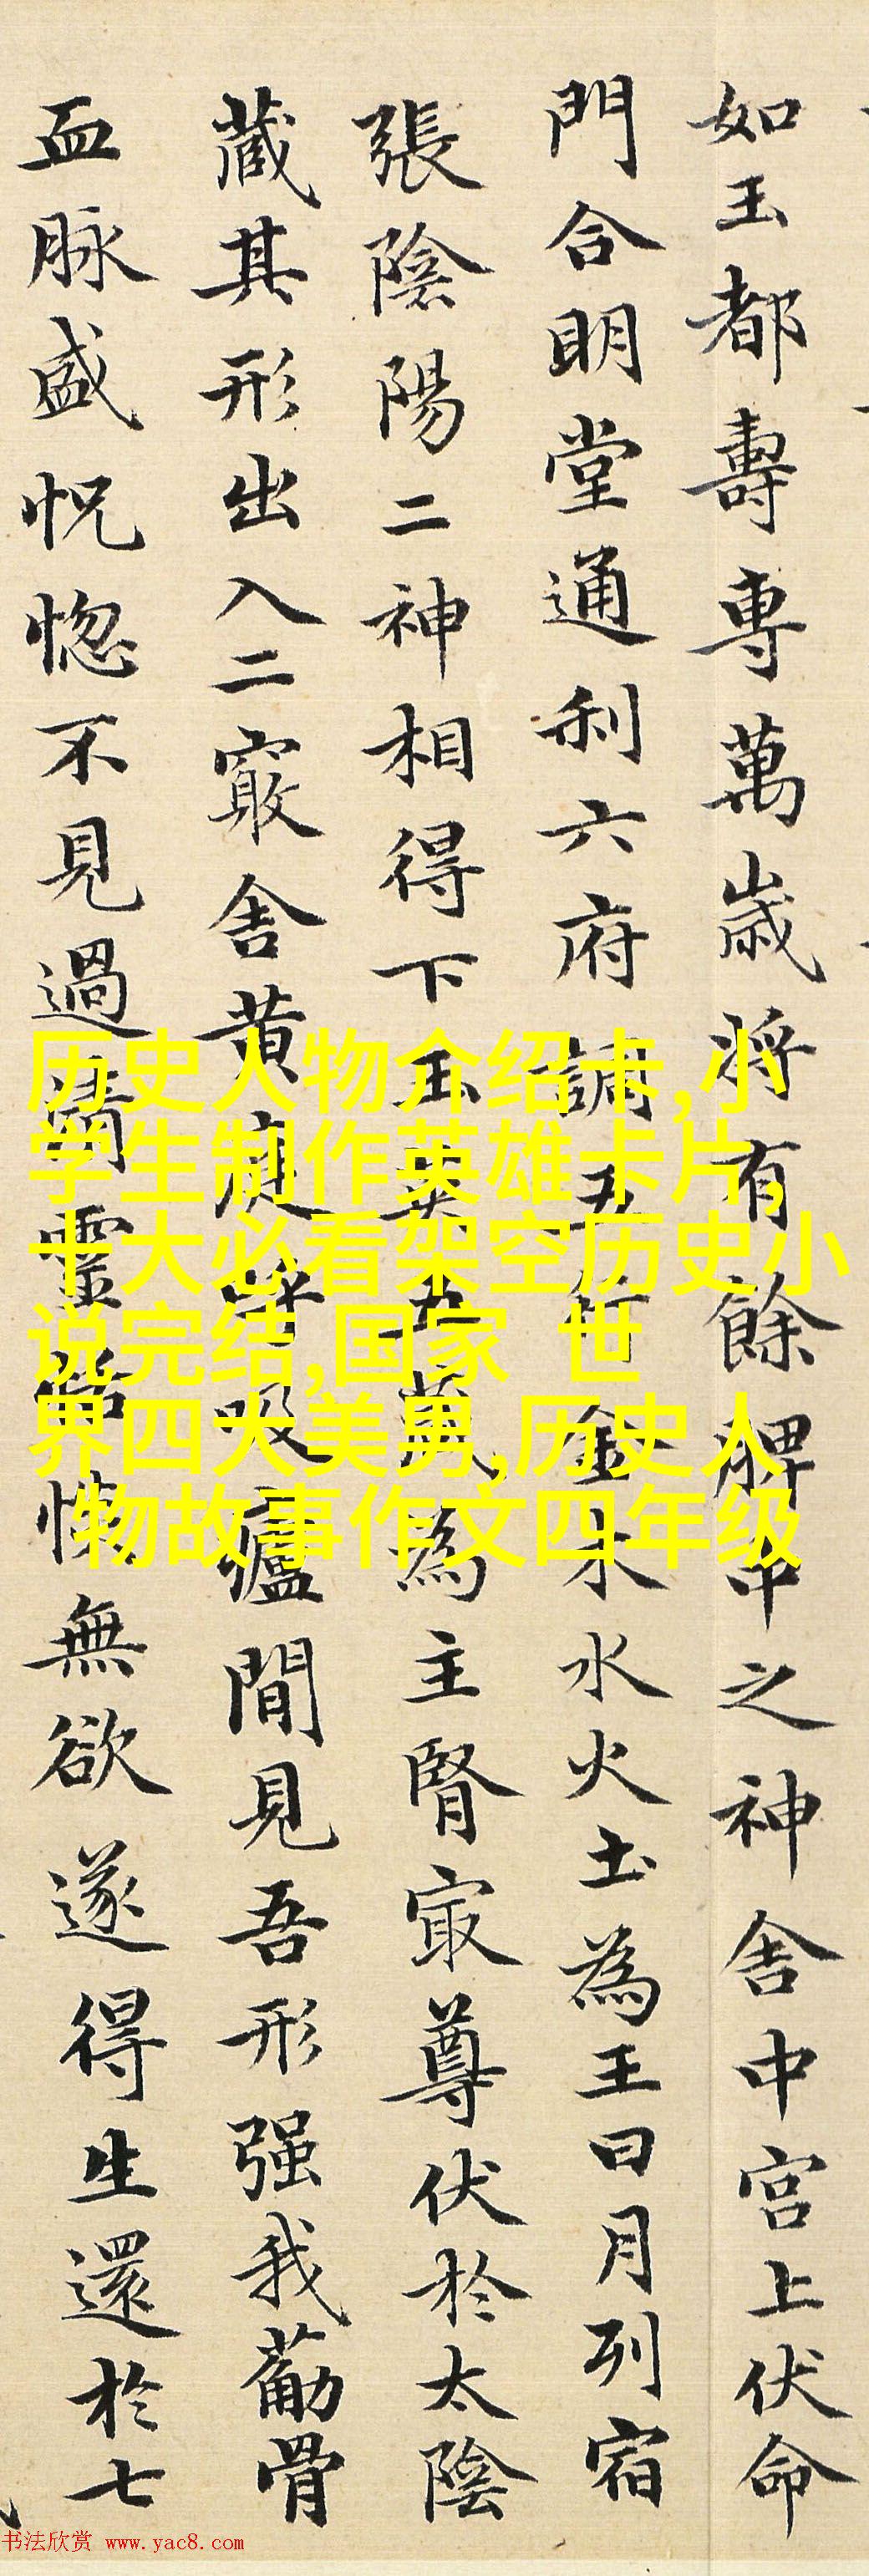 如玉都壽專萬歲将有餘脾中之神舍中宫上伏命
門合明堂通利六府調五行金木水火土為王日月列宿
張陰陽二神相得下玉英五藏為主腎㝡尊伏於太陰
藏其形出入二竅舍黄庭呼吸廬間見吾形强我葡骨
血脉盛怳惚不見過清靈恬惔無欲遂得生還於七
历史人物介绍卡,小
学生制作英雄卡片,
十大必看架空历史小
说完结,国家 世
界四大美男,历史人
物故事作文四年级
书法欣赏 www.yac8.com